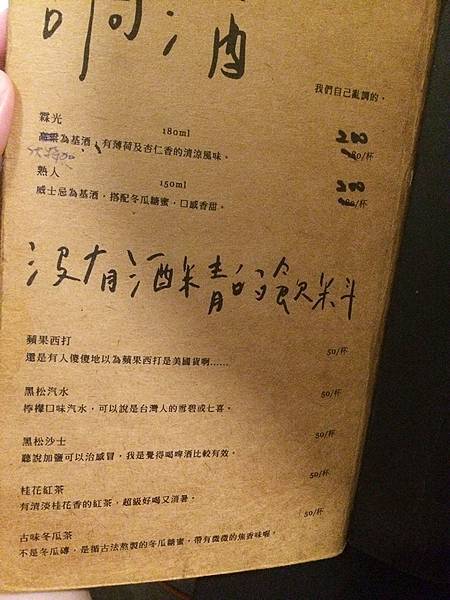 調酒
我們自己亂調的。
霖光
180ml
200
180/杯
高粱為基酒，有薄荷及杏仁香的清涼風味。
熟人
150ml
200
180/杯
威士忌為基酒，搭配冬瓜糖蜜，口感香甜。
沒有酒精的飲料
蘋果西打
50/杯
還是有人傻傻地以為蘋果西打是美國貨啊......
黑松汽水
50/杯
檸檬口味汽水，可以說是台灣人的雪碧或七喜。
黑松沙士
50/杯
聽說加鹽可以治感冒，我是覺得喝啤酒比較有效。
桂花紅茶
50/杯
有清淡桂花香的紅茶，超級好喝又消暑。
古味冬瓜茶
50/杯
不是冬瓜磚，是循古法熬製的冬瓜糖蜜，帶有微微的焦香味喔。